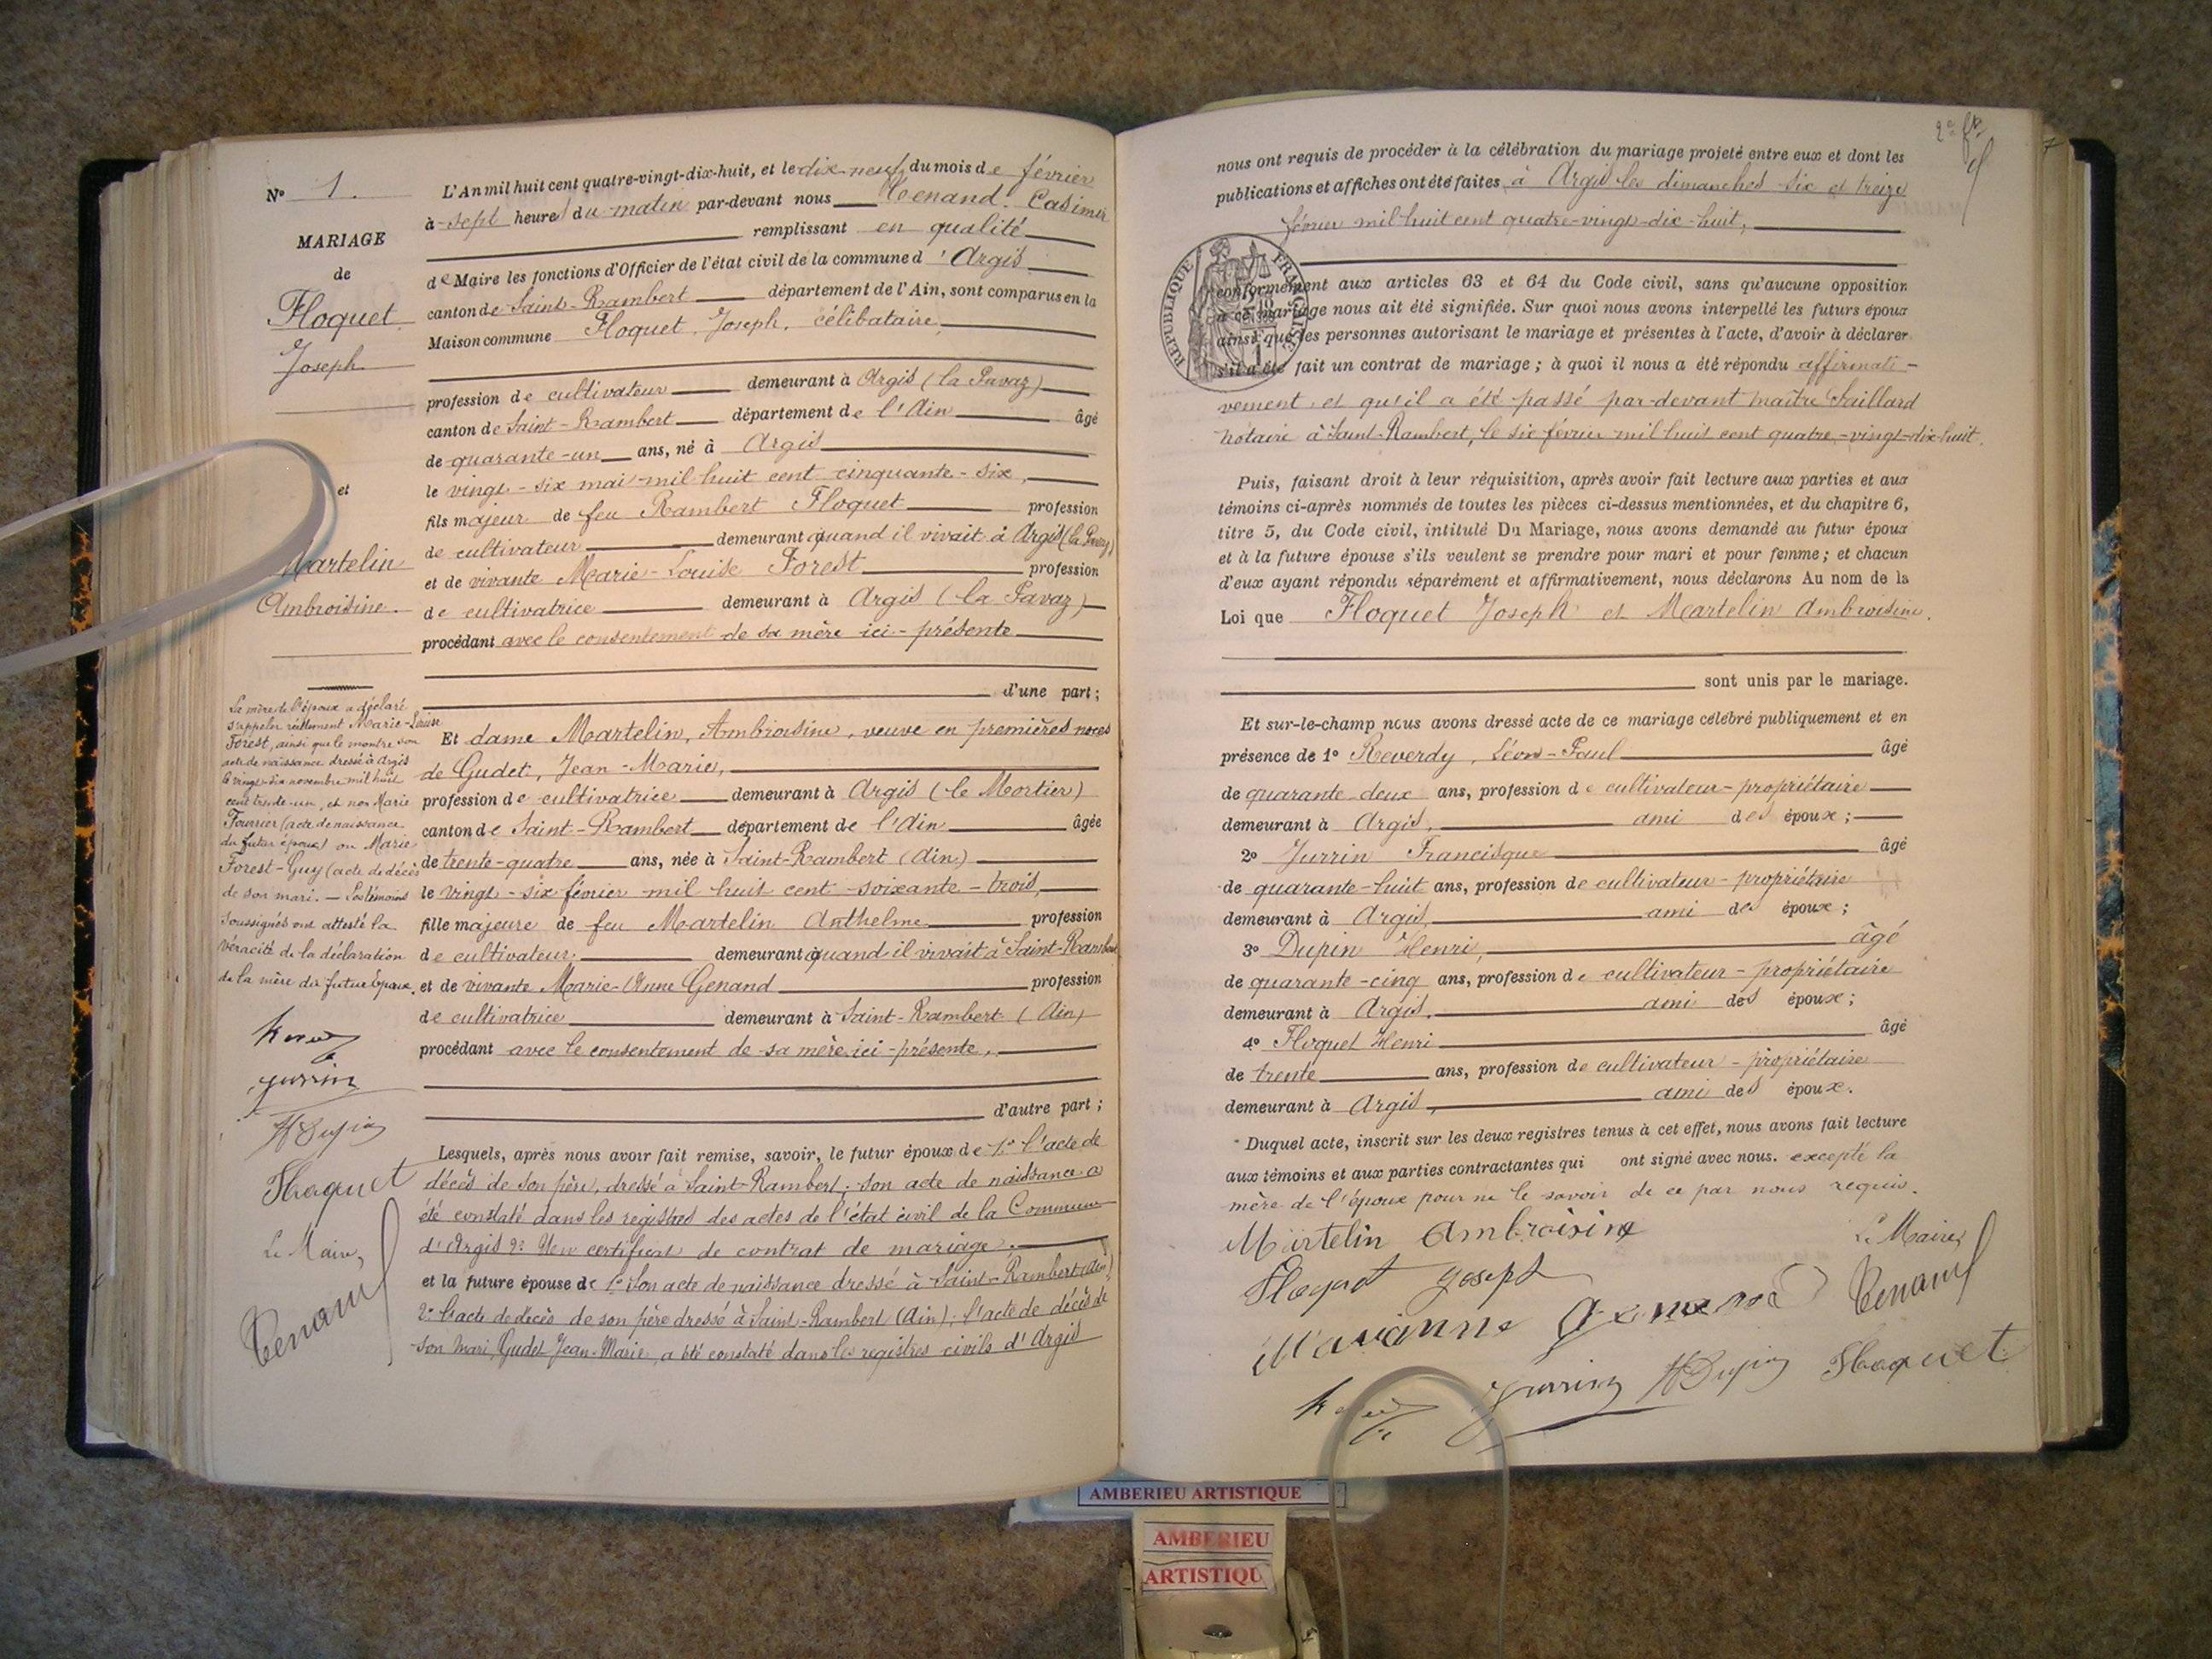 N° 1.
MARIAGE
de
Floquet
Joseph
et
Martelin
Ambroisine.
La mère de l'époux a déclaré
s'appeler réellement Marie-Louise
Forest, ainsi que le montre son
acte de naissance dressé à Argis
le vingt-six novembre mil huit
cent trente-un, et non Marie
Fourrier (acte de naissance
du futur époux) ou Marie
Forest-Guy (acte de décès
de son mari. — Les témoins
soussignés ont attesté la
véracité de la déclaration
de la mère du futur époux.
Jurrin
H Dupin
Floquet
Le Maire,
Tenand
L'An mil huit cent quatre-vingt-dix-huit, et le dix-neuf, du mois de février
à sept heures du matin par-devant nous Tenand. Casimir
remplissant en qualité
de Maire les fonctions d'Officier de l'état civil de la commune d'Argis
canton de Saint-Rambert département de l'Ain, sont comparus en la
Maison commune Floquet, Joseph, célibataire
profession de cultivateur demeurant à Argis (la Pavaz)
canton de Saint-Rambert département de l'Ain âgé
de quarante-un ans, né à Argis
le vingt-six mai mil huit cent cinquante-six,
fils majeur de feu Rambert Floquet profession
de cultivateur demeurant quand il vivait à Argis (la Pavaz)
et de vivante Marie-Louise Forest profession
de cultivatrice demeurant à Argis (la Pavaz)
procédant avec le consentement de sa mère ici-présente
d'une part;
Et dame Martelin, Ambroisine, veuve en premières noces
de Gudet, Jean-Marie,
profession de cultivatrice demeurant à Argis (le Mortier)
canton de Saint-Rambert département de l'Ain âgée
de trente-quatre ans, née à Saint-Rambert (Ain)
le vingt-six février mil huit cent soixante-trois,
fille majeure de feu Martelin Anthelme profession
de cultivateur, demeurant quand il vivait à Saint-Rambert
et de vivante Marie-Anne Genand profession
de cultivatrice demeurant à Saint-Rambert (Ain)
procédant avec le consentement de sa mère ici-présente,
d'autre part;
Lesquels, après nous avoir fait remise, savoir, le futur époux de 1° l'acte de
décès de son père, dressé à Saint-Rambert; son acte de naissance a
été constaté dans les registres des actes de l'état civil de la Commune
d'Argis 2° Un certificat de contrat de mariage.
et la future épouse de 1° Son acte de naissance dressé à Saint-Rambert (Ain)
2° L'acte de décès de son père dressé à Saint-Rambert (Ain); l'acte de décès de
son mari, Gudet Jean-Marie, a été constaté dans les registres civils d'Argis
nous ont requis de procéder à la célébration du mariage projeté entre eux et dont les
publications et affiches ont été faites à Argis les dimanches six et treize
février mil huit cent quatre-vingt-dix-huit,
RÉPUBLIQUE FRANÇAISE
conformément aux articles 63 et 64 du Code civil, sans qu'aucune opposition
à ce mariage nous ait été signifiée. Sur quoi nous avons interpellé les futurs époux
ainsi que les personnes autorisant le mariage et présentes à l'acte, d'avoir à déclarer
s'il a été fait un contrat de mariage; à quoi il nous a été répondu affirmati-
vement, et qu'il a été passé par-devant maître Saillard
notaire à Saint-Rambert, le six février mil huit cent quatre-vingt-dix-huit.
Puis, faisant droit à leur réquisition, après avoir fait lecture aux parties et aux
témoins ci-après nommés de toutes les pièces ci-dessus mentionnées, et du chapitre 6,
titre 5, du Code civil, intitulé Du Mariage, nous avons demandé au futur époux
et à la future épouse s'ils veulent se prendre pour mari et pour femme; et chacun
d'eux ayant répondu séparément et affirmativement, nous déclarons Au nom de la
Loi que Floquet Joseph et Martelin Ambroisine.
sont unis par le mariage.
Et sur-le-champ nous avons dressé acte de ce mariage célébré publiquement et en
présence de 1° Reverdy, Léon-Paul âgé
de quarante-deux ans, profession de cultivateur-propriétaire
demeurant à Argis, ami des époux;
2° Jurrin Francisque âgé
de quarante-huit ans, profession de cultivateur-propriétaire
demeurant à Argis, ami des époux;
3° Dupin Henri, âgé
de quarante-cinq ans, profession de cultivateur-propriétaire
demeurant à Argis, ami des époux;
4° Floquet Henri âgé
de trente ans, profession de cultivateur-propriétaire
demeurant à Argis, ami des époux.
Duquel acte, inscrit sur les deux registres tenus à cet effet, nous avons fait lecture
aux témoins et aux parties contractantes qui ont signé avec nous. excepté la
mère de l'époux pour ne le savoir de ce par nous requis.
Martelin Ambroisine
Le Maire,
Floquet Joseph
Tenand
Marianne Genand
Jurrin H Dupin Floquet
AMBERIEU ARTISTIQUE
AMBERIEU
ARTISTIQU